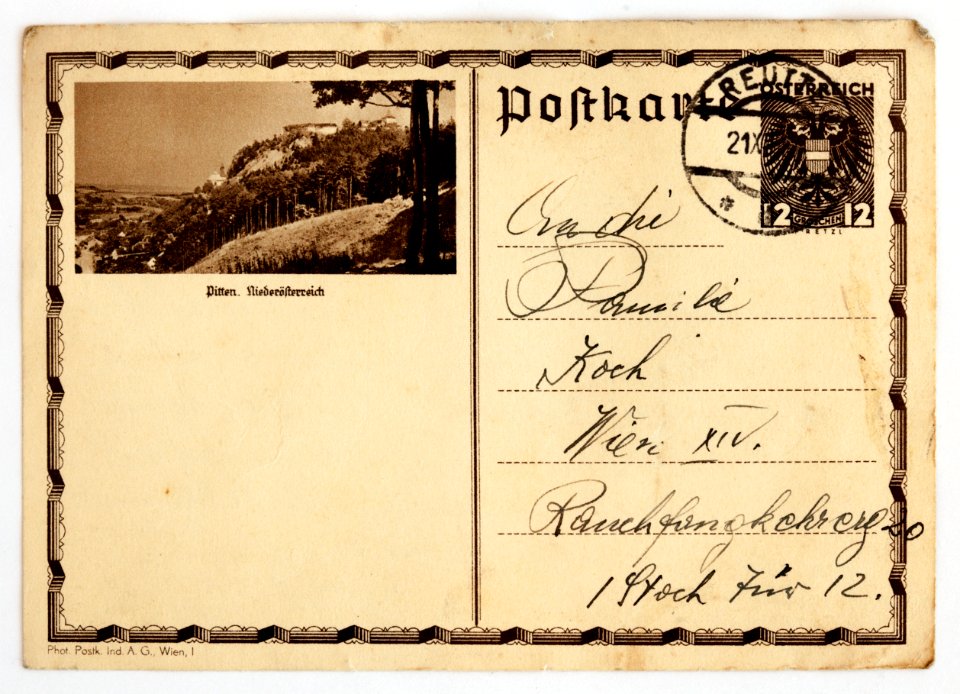 Postkarte
REUTTE
ÖSTERREICH
21.X
12 GROSCHEN 12
RETZL
Pitten. Niederösterreich
An die
Familie
Koch
Wien XIV.
Rauchfangkehrerg 20
1 Stock Tür 12.
Phot. Postk. Ind. A. G., Wien, I